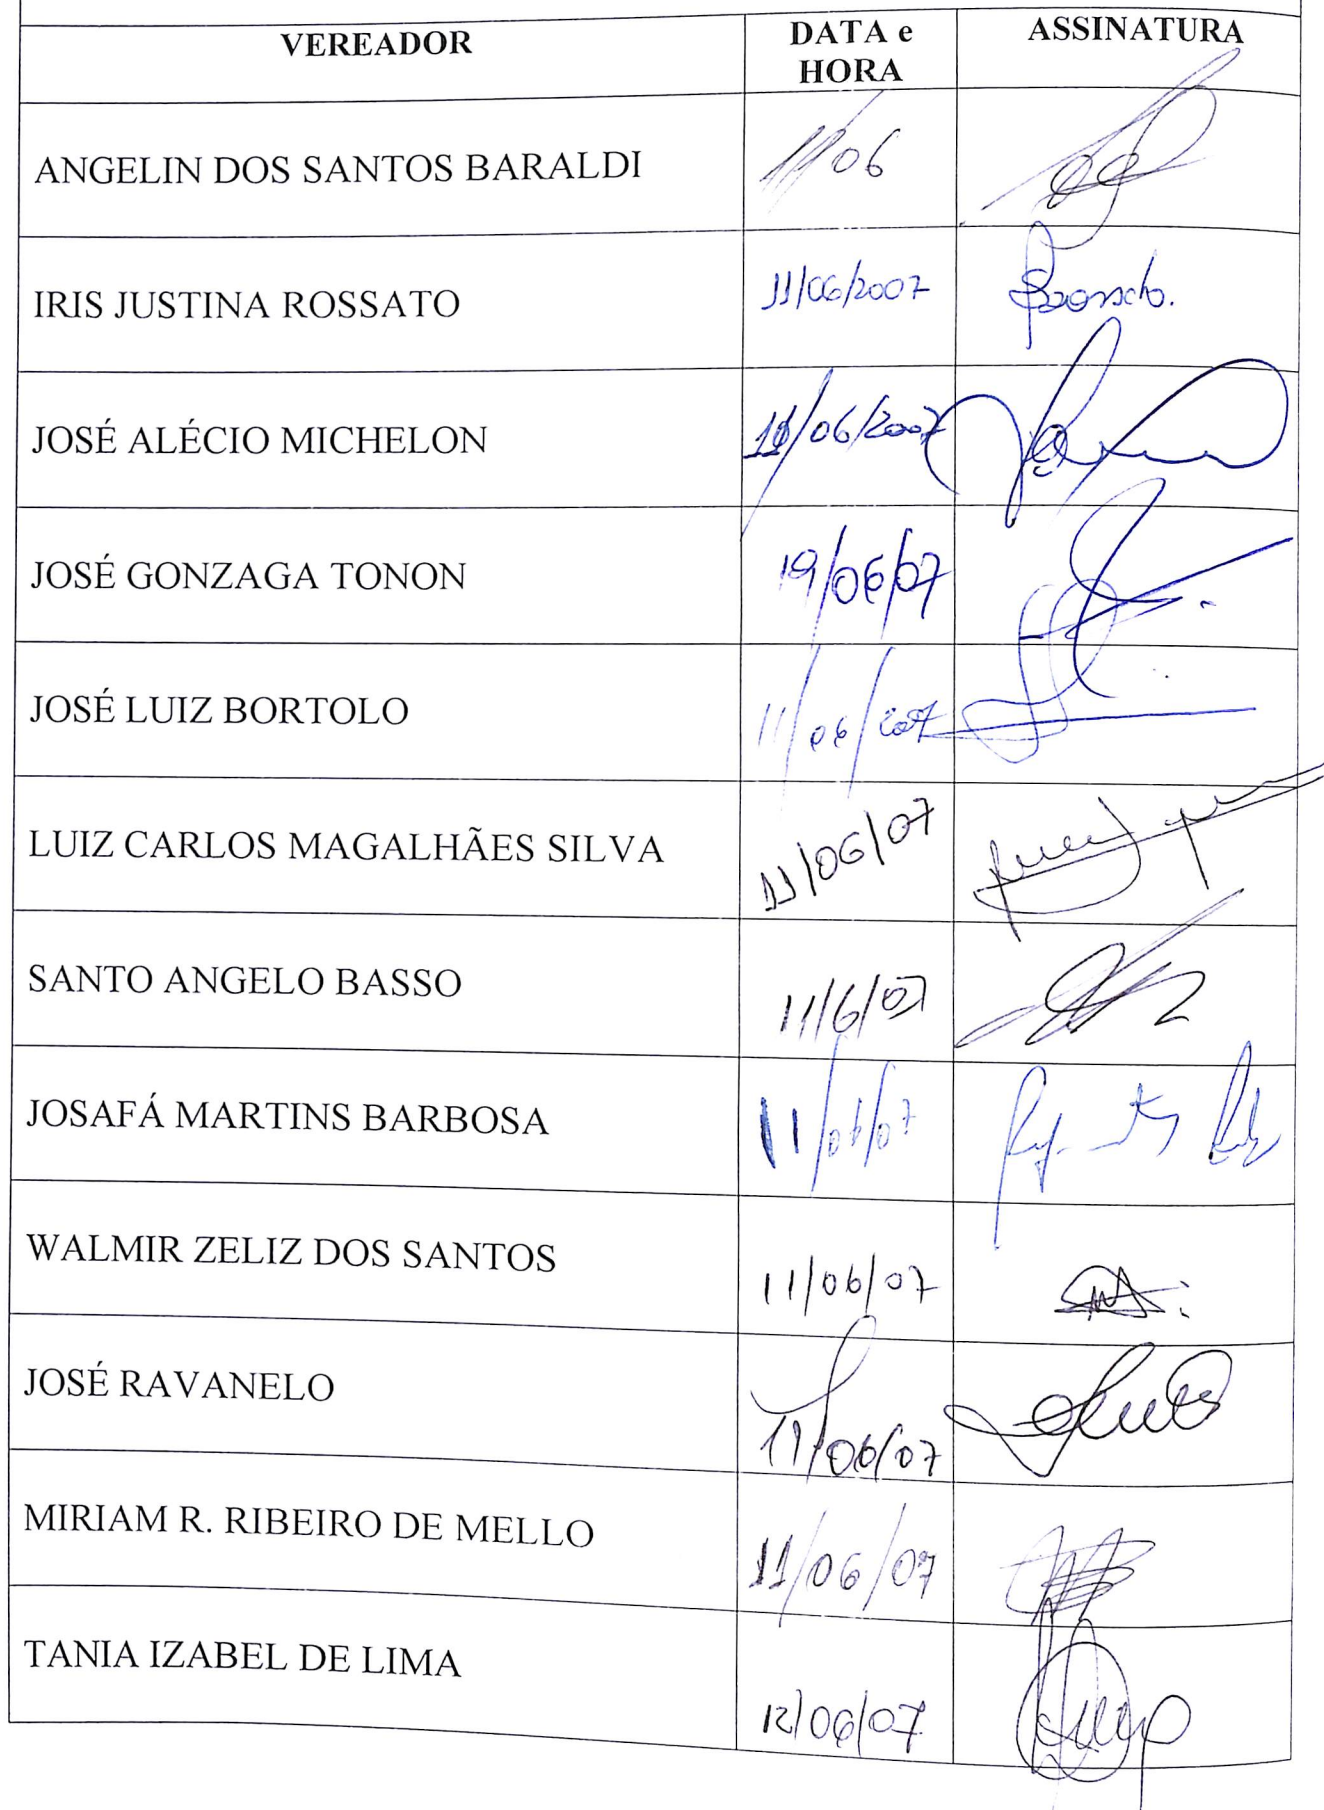 VEREADOR DATA e HORA ASSINATURA
ANGELIN DOS SANTOS BARALDI 11/06
IRIS JUSTINA ROSSATO 11/06/2007
JOSÉ ALÉCIO MICHELON 11/06/2007
JOSÉ GONZAGA TONON 19/06/07
JOSÉ LUIZ BORTOLO 11/06/2007
LUIZ CARLOS MAGALHÃES SILVA 11/06/07
SANTO ANGELO BASSO 11/6/07
JOSAFÁ MARTINS BARBOSA 11/06/07
WALMIR ZELIZ DOS SANTOS 11/06/07
JOSÉ RAVANELO 11/06/07
MIRIAM R. RIBEIRO DE MELLO 11/06/07
TANIA IZABEL DE LIMA 12/06/07